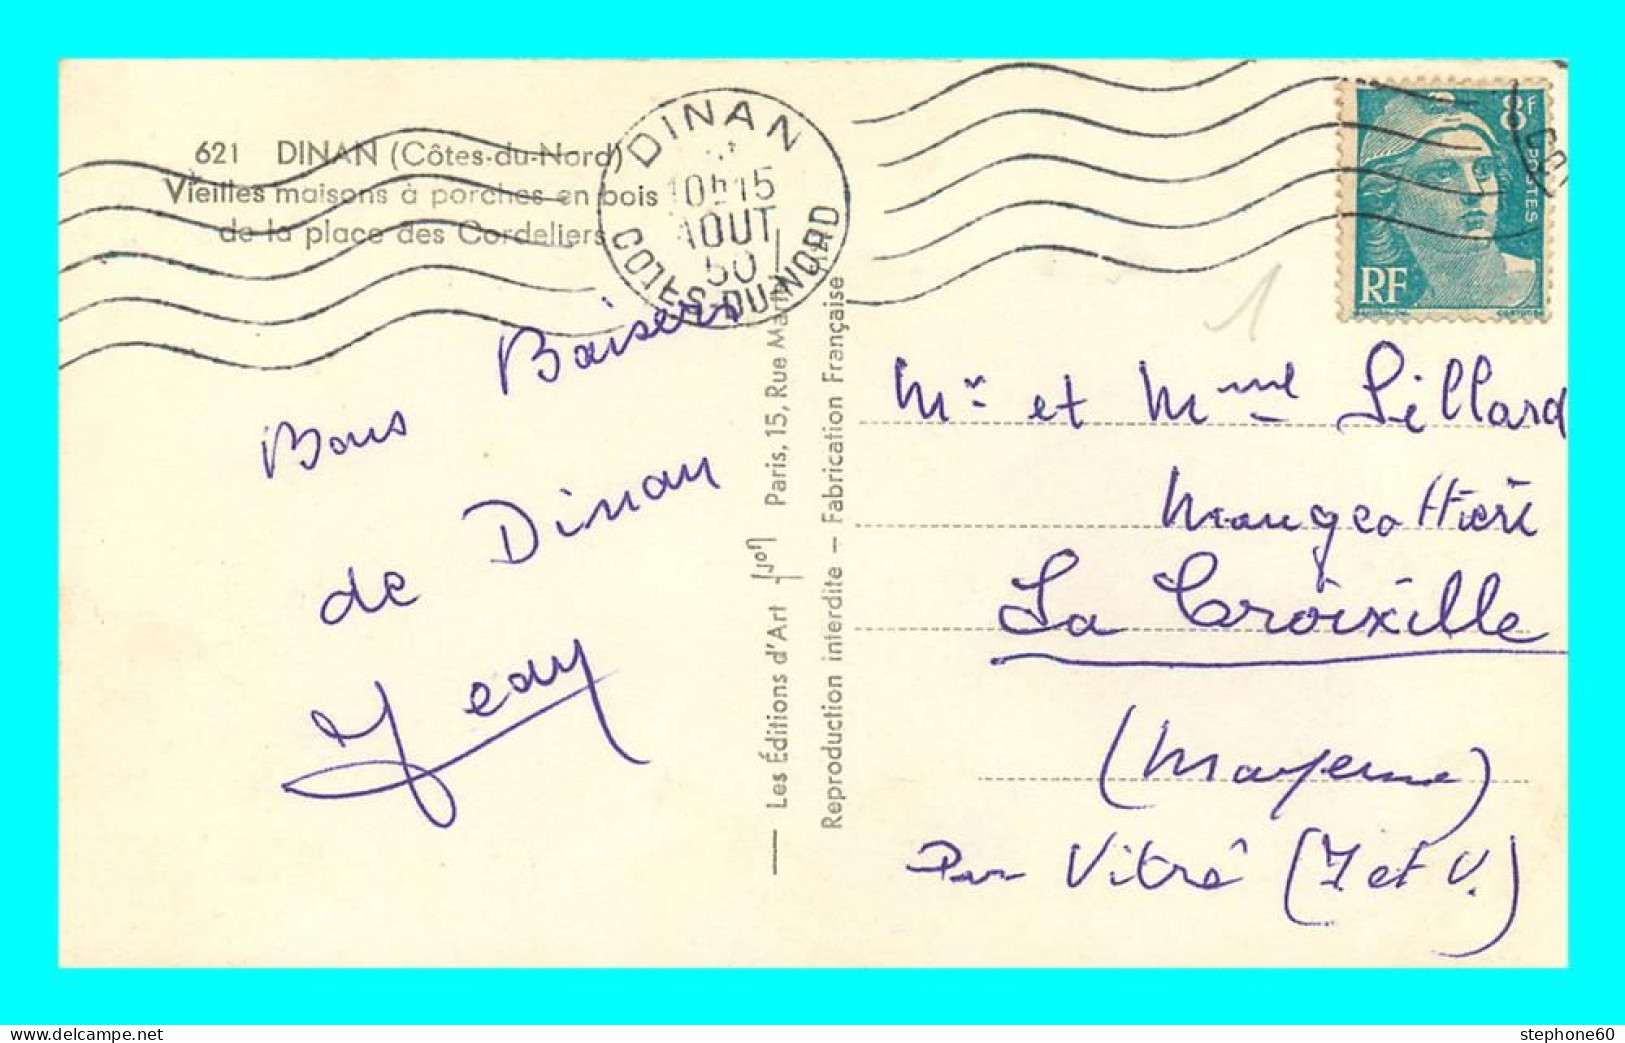 621 DINAN (Côtes-du-Nord)
Vieilles maisons à porches en bois
de la place des Cordeliers
DINAN
10H15
AOUT
50
COTES-DU-NORD
8F
POSTES
RF
1
Bons Baisers
de Dinan
Les Éditions d'Art Yvon Paris, 15, Rue Martel
Reproduction interdite - Fabrication Française
Mr et Mme Lillard
La Croixille
(Mayenne)
Par Vitré (I et V.)
stephone60